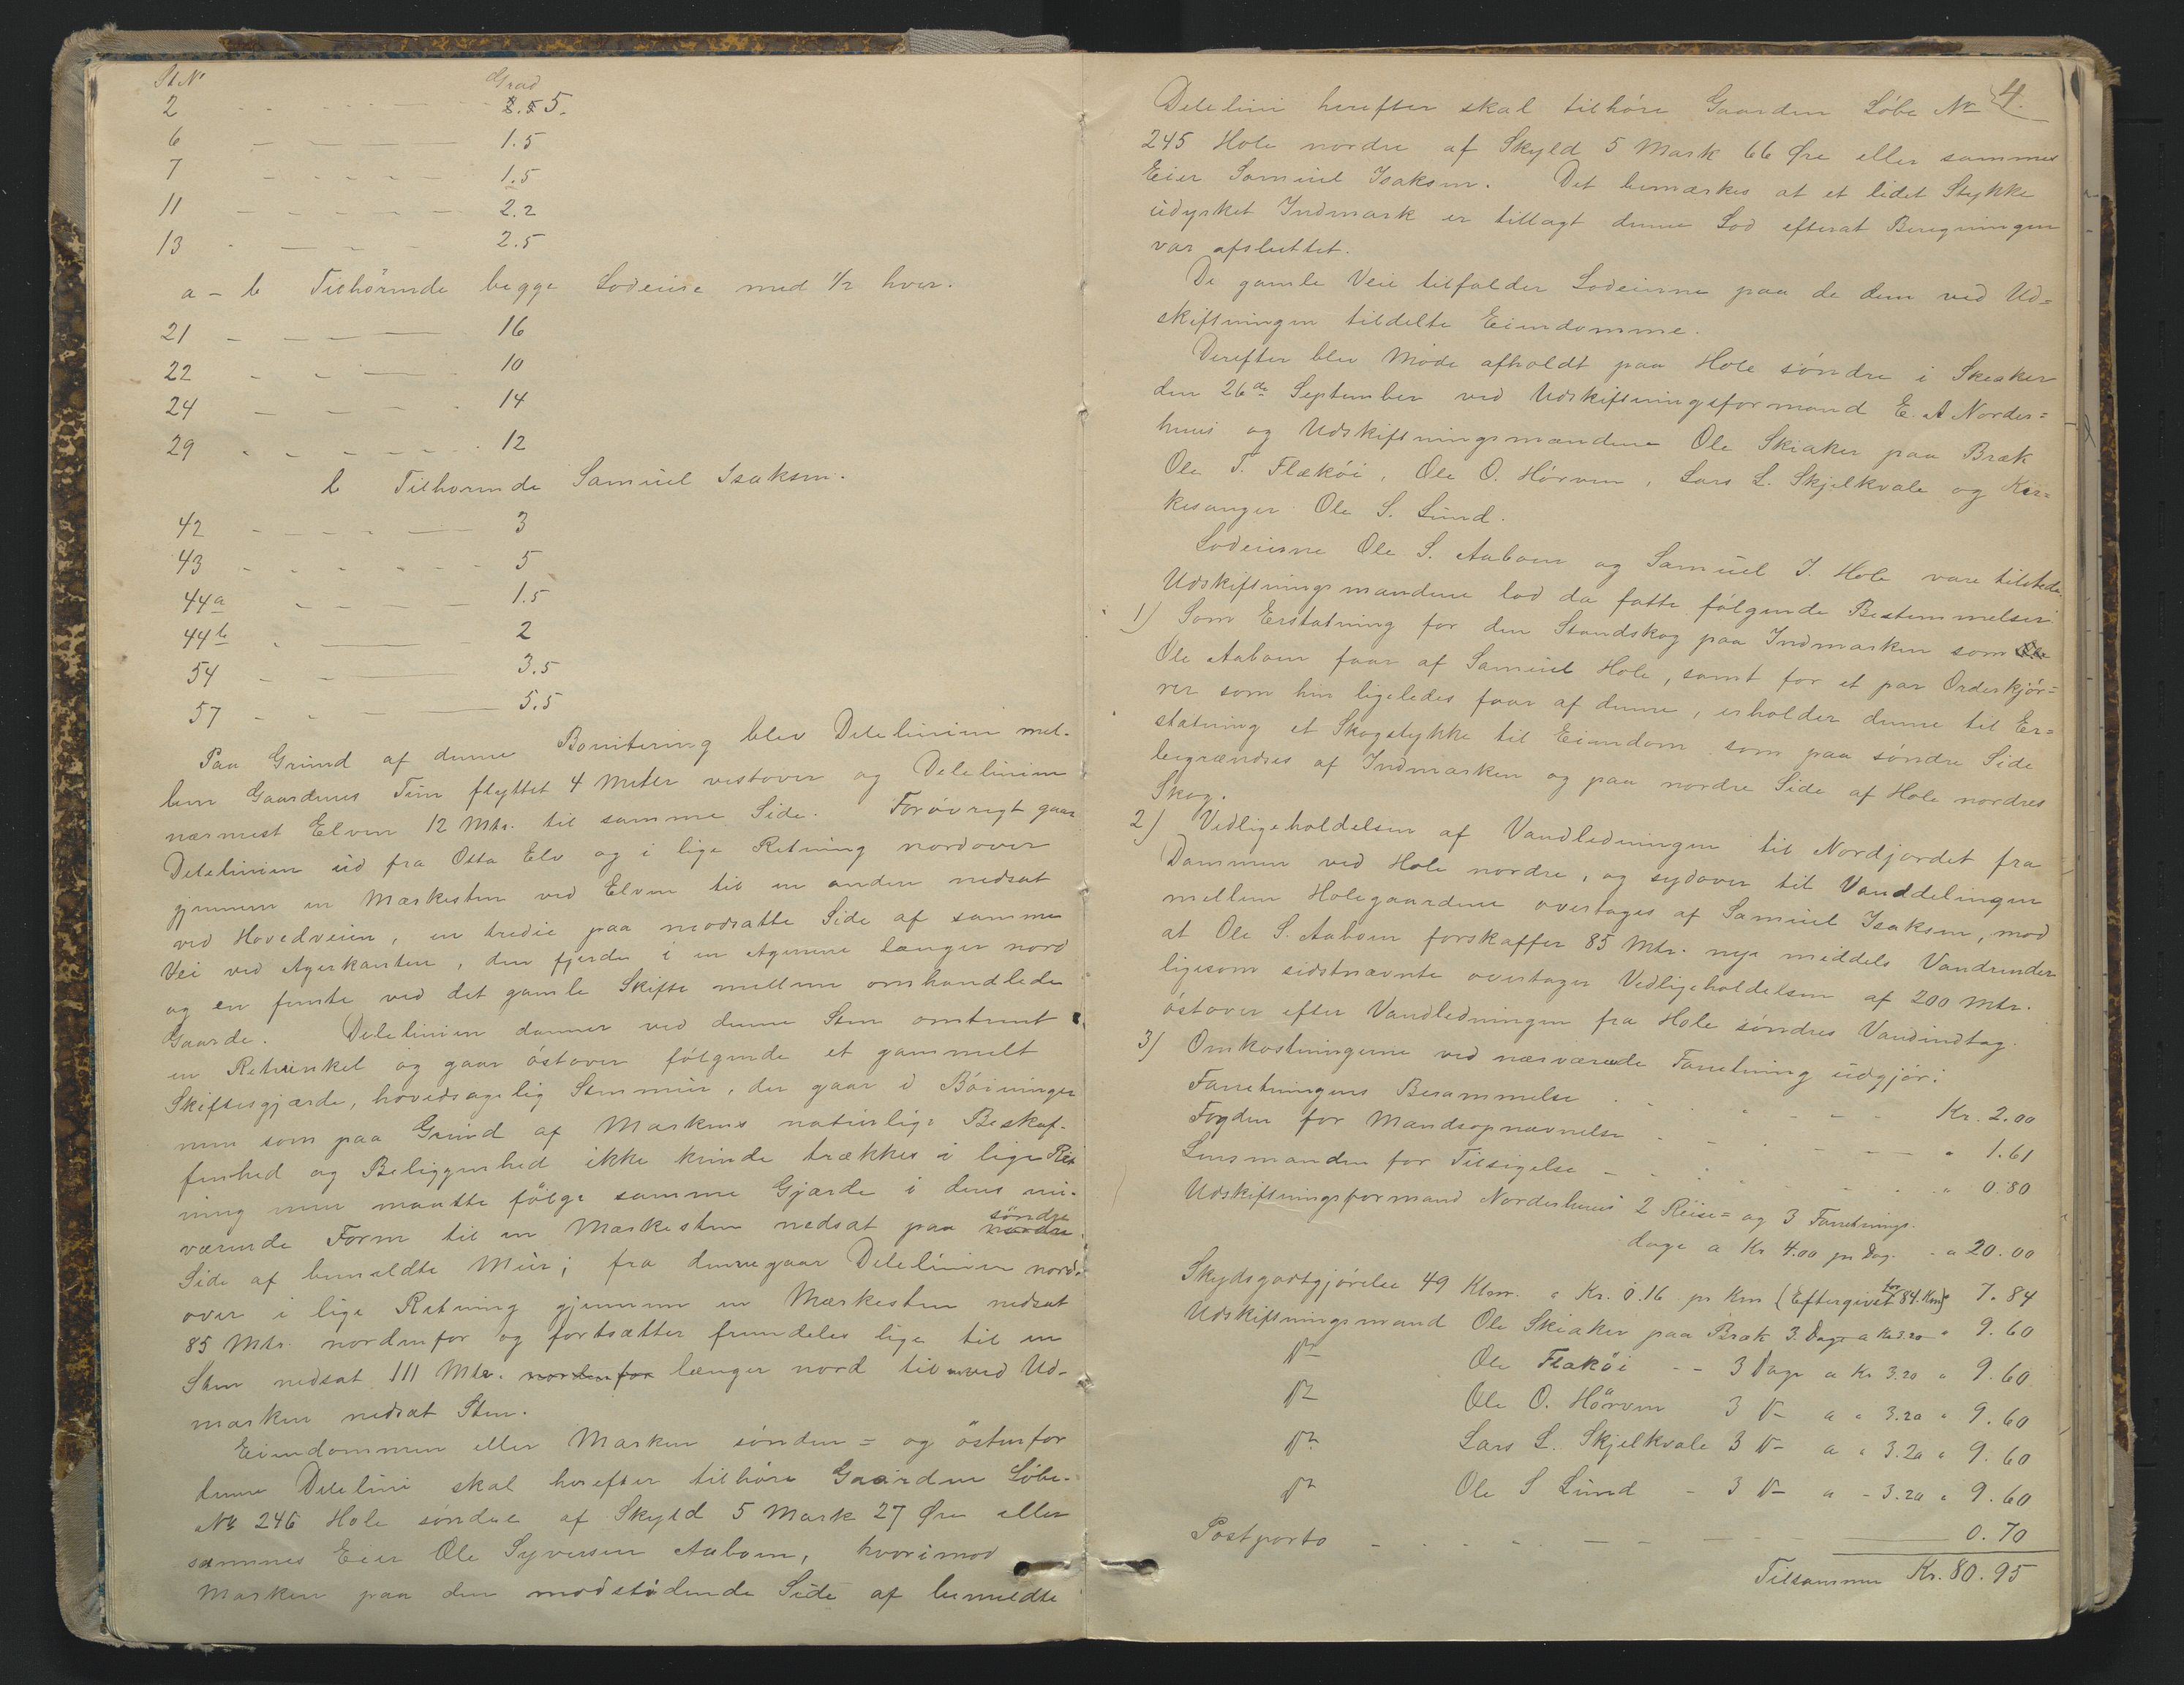 St.N° Grad
2 - - - - - 5.
6 - - - - - 1.5
7 - - - - - 1.5
11 - - - - - 2.2
13 - - - - - 2.5
a - b Tilhörende begge Lodeiere med 1/2 hver.
21 - - - 16
22 - - - 10
24 - - - 14
29 - - - - - 12
b Tilhørende Samuel Isaksen.
42 - - - - 3
43 - - - - - 5
44a - - - - 1.5
44b - - 2
54 - - - 3.5
57 - - - 5.5
Paa Grund af denne Bonitering blev Delelinien mel-
lem Gaardenes Tun flyttet 4 Meter vestover og Delelinien
nærmest Elven 12 Mtr. til samme Side. Forøvrigt gaar
Delelinien ud fra Otta Elv og i lige Retning nordover
gjennem en Markesten ved Elven til en anden nedsat
ved Hovedveien, en tredie paa modsatte Side af samme
Vei ved Agerkanten, den fjerde i en Agerrene længer nord
og en femte ved det gamle Skifte mellem omhandlede
Gaarde. Delelinien danner ved denne Sten omtrent
en Retvinkel og gaar östover følgende et gammelt
Skiftesgjærde, hovedsagelig Stenmur, der gaar i Böininger
men som paa Grund af Markens naturlige Beskaf-
fenhed og Beliggenhed ikke kunde trækkes i lige Ret
ning men maatte fölge samme Gjærde i dens nu-
værende Form til en Markesten nedsat paa nordre söndre
Side af bemeldte Mur; fra denne gaar Delelinien nord-
over i lige Retning gjennem en Markesten nedsat
85 Mtr. nordenfor og fortsætter fremdeles lige til en
Sten nedsat 111 Mtr. nordenfor længer nord til en ved Ud-
marken nedsat Sten.
Eiendommen eller Marken sönden= og östenfor
denne Delelini skal herefter tilhøre Gaarden Löbe-
No 246 Hole söndre af Skyld 5 Mark 27 Øre eller
sammes Eier Ole Syversen Aabom, hvorimod
Marken paa den modstödende Side af bemeldte
4.
Delelini herefter skal tilhöre Gaarden Löbe No
245 Hole nordre af Skyld 5 Mark 66 Øre eller sammes
Eier Samuel Isaksen. Det bemærkes at et lidet Stykke
udyrket Indmark er tillagt denne Lod efterat Beregningen
var afsluttet.
De gamle Veie tilfalder Lodeierne paa de dem ved Ud=
skiftningen tildelte Eiendomme.
Derefter blev Möde afholdt paa Hole söndre i Skeaker
den 26de September ved Udskiftningsformand E. A Norder=
huus og Udskiftningsmændene Ole Skiaker paa Bræk
Ole T. Flækøi, Ole O. Hörven, Lars L. Skjelkvale og Kir=
kesanger Ole S. Lund.
Lodeierne Ole S. Aabom og Samuel I. Hole vare tilstede.
Udskiftningsmændene lod da fatte fölgende Bestemmelser:
1) Som Erstatning for den Standskog paa Indmarken som
Ole Aabom faar af Samuel Hole, samt for et par Orderkjör=
rer som hin ligeledes faar af denne, erholder denne til Er=
statning et Skogstykke til Eiendom som paa søndre Side
begrændses af Indmarken og paa nordre Side af Hole nordres
Skog.
2) Vedligeholdelsen af Vandledningen til Nordjordet fra
Dammen ved Hole nordre, og sydover til Vanddelingen
mellem Holegaardene overtages af Samuel Isaksen, mod
at Ole S. Aabom forskaffer 85 Mtr. nye middels Vandrender
ligesom sidstnævnte overtager Vedligeholdelsen af 200 Mtr.
östover efter Vandledningen fra Hole söndres Vandindtag.
3) Omkostningerne ved nærværende Forretning udgjör:
Forretningens Berammelse - - - - - Kr. 2.00
Fogden for Mandsopnævnelse - - - - - " 1.61
Lensmanden for Tilsigelse - - - - - " 0.80
Udskiftningsformand Norderhuus 2 Reise= og 3 Forretnings-
dage a Kr 4.00 pr Dag - " 20.00
Skydsgodtgjörelse 49 Klom. a Kr. 0.16 pr Km (Eftergivet for 84. Km) " 7.84
Udskiftningsmand Ole Skiaker paa Bræk 3. Dage a Kr 3.20 " 9.60
Do Ole Flækøi - - 3 Dage a Kr 3.20 " 9.60
Do Ole O. Hörven 3 Do a " 3.20 " 9.60
Do Lars L. Skjelkvale 3 Do a " 3.20 " 9.60
Do Ole S Lund - 3 Do a - 3.20 " 9.60
Postporto - - - - - 0.70
Tilsammen Kr. 80.95